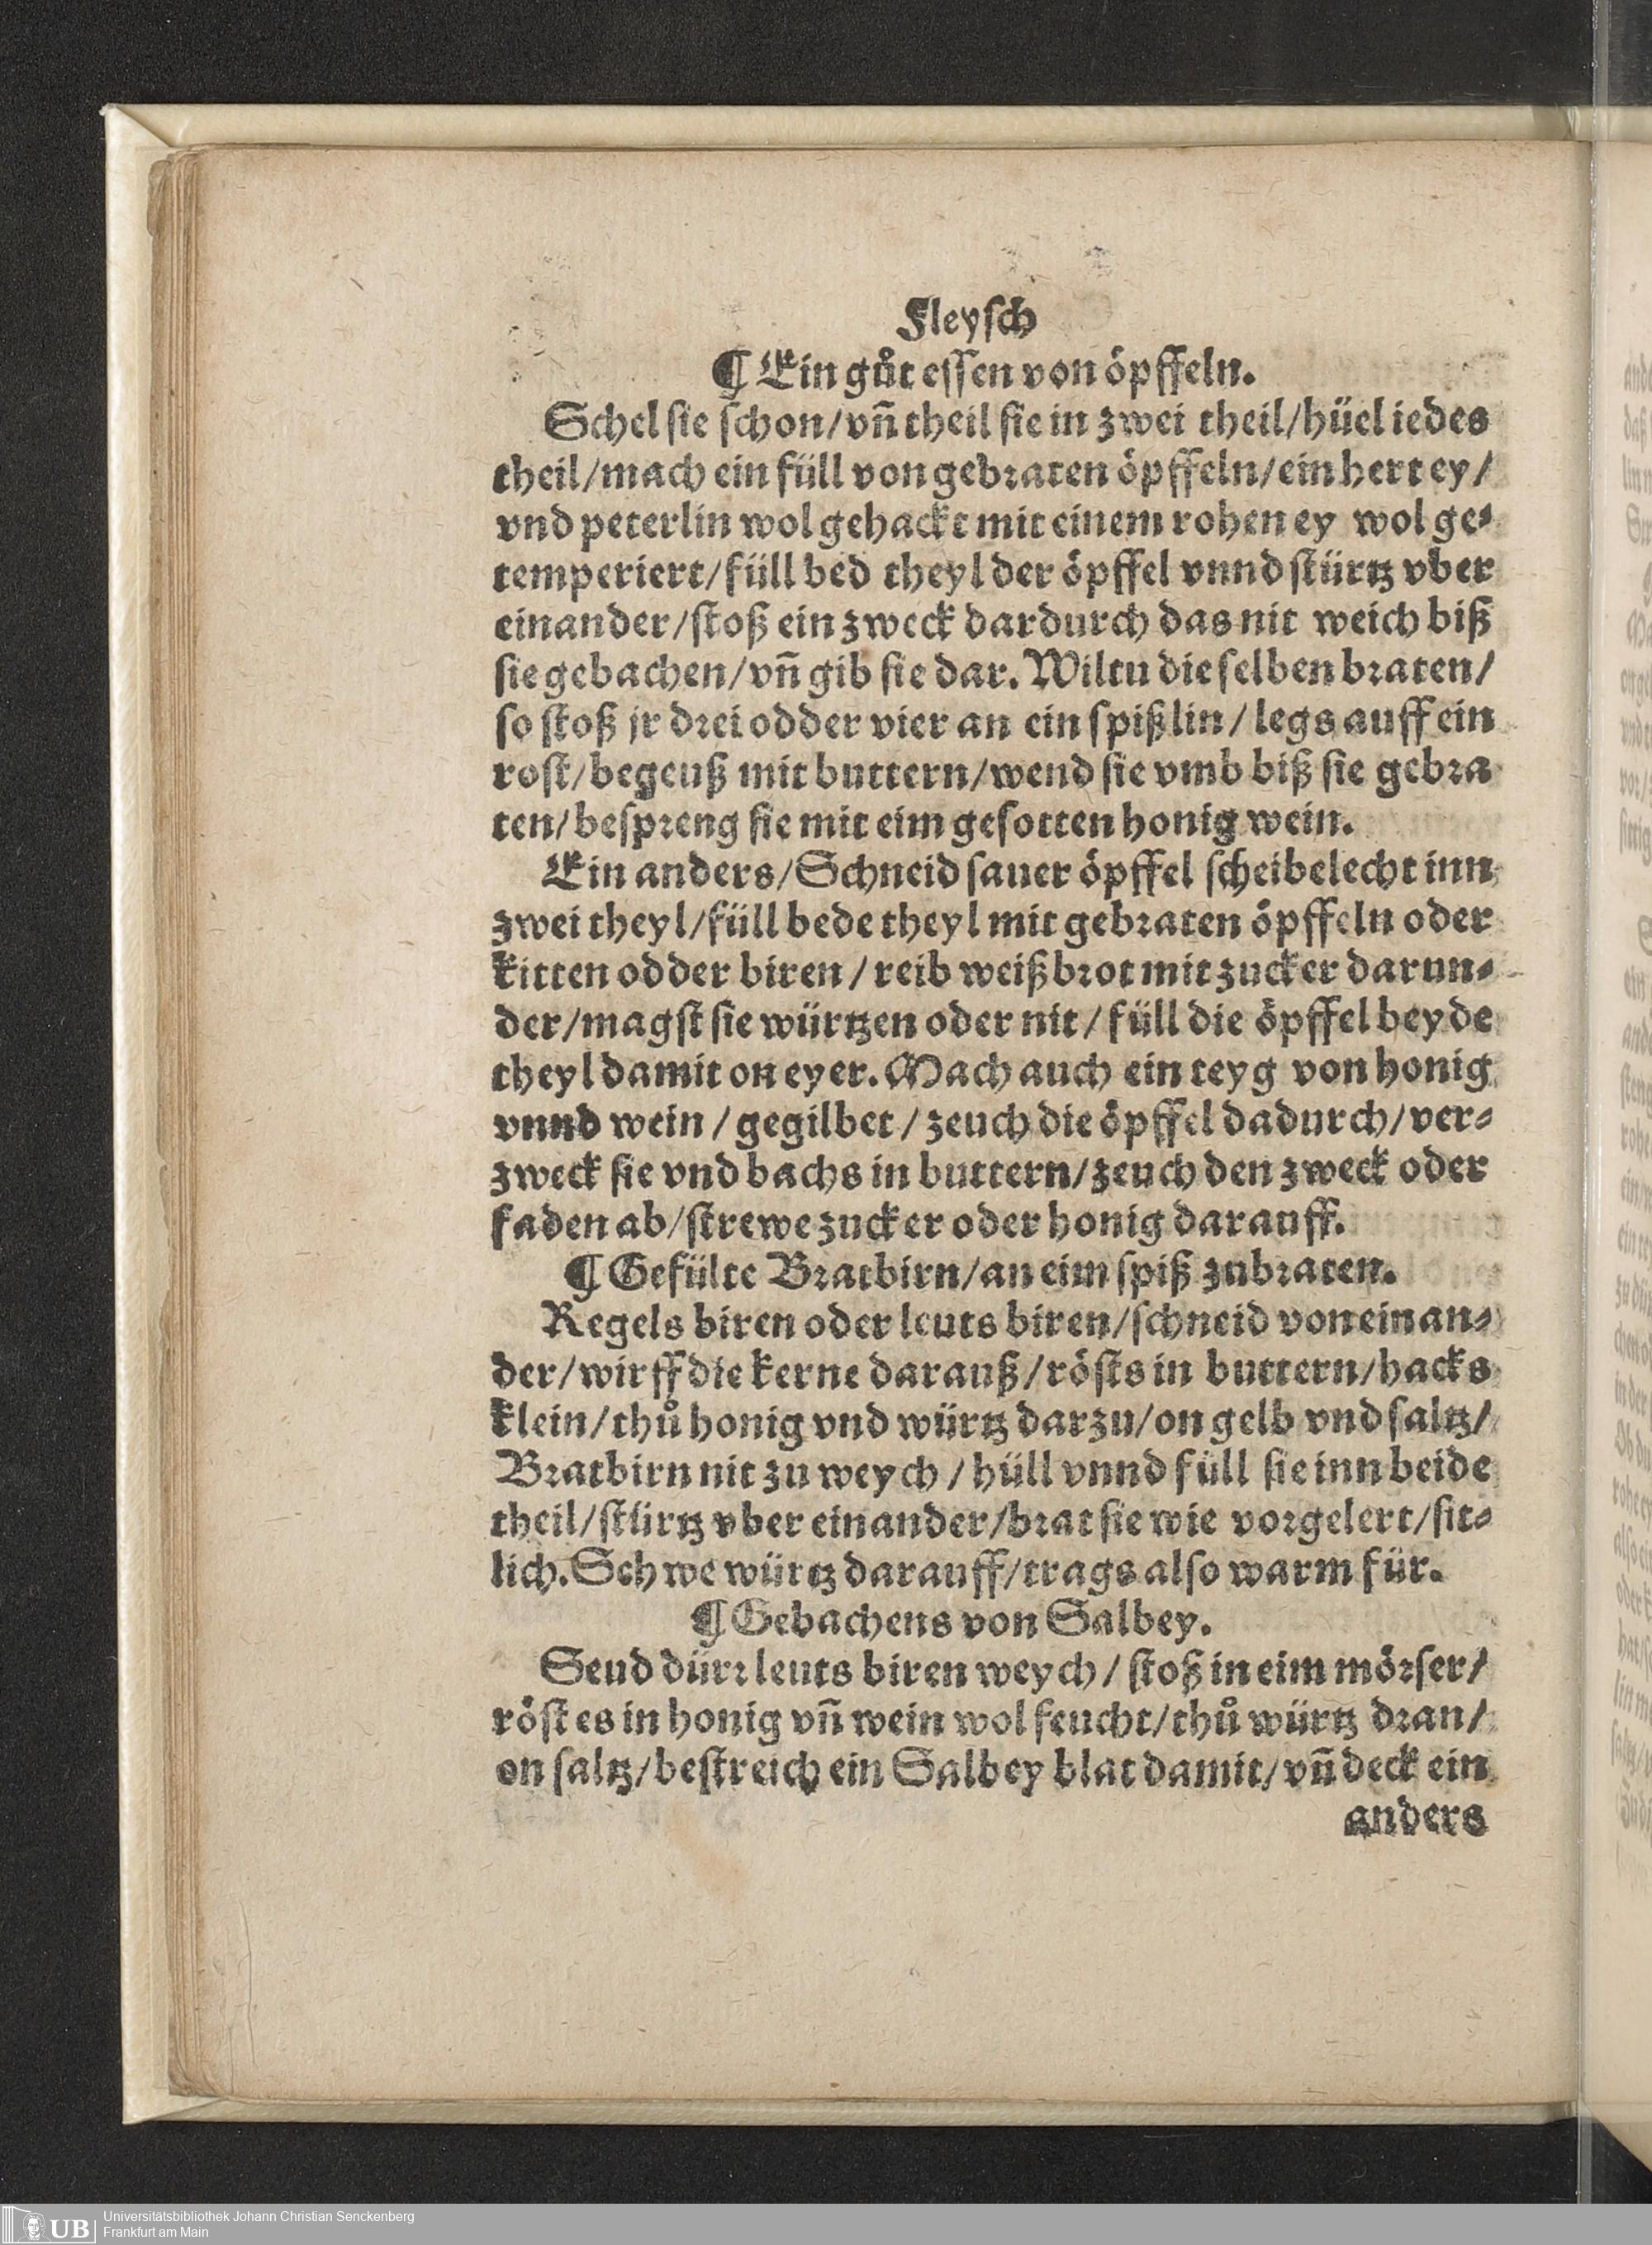 Fleyſch
¶ Ein gůt eſſen von öpffeln.
Schel ſie ſchon/vñ theil ſie in zwei theil/hüel iedes
theil/mach ein füll von gebraten öpffeln/ein hert ey/
vnd peterlin wol gehackt mit einem rohen ey wol ge⸗
temperiert/füll bed theyl der öpffel vnnd ſtürtz vber
einander/ſtoß ein zweck dardurch das nit weich biß
ſie gebachen/vñ gib ſie dar. Wiltu die ſelben braten/
ſo ſtoß jr drei odder vier an ein ſpißlin/legs auff ein
roſt/begeuß mit buttern/wend ſie vmb biß ſie gebra
ten/beſpreng ſie mit eim geſotten honig wein.
Ein anders/Schneid ſauer öpffel ſcheibelecht inn
zwei theyl/füll bede theyl mit gebraten öpffeln oder
kitten odder biren/reib weißbrot mit zucker darun⸗
der/magſt ſie würtzen oder nit/füll die öpffel beyde
theyl damit on eyer. Mach auch ein teyg von honig
vnnd wein/gegilbet/zeuch die öpffel dadurch/ver⸗
zweck ſie vnd bachs in buttern/zeuch den zweck oder
faden ab/ſtrewe zucker oder honig darauff.
¶ Gefülte Bratbirn/an eim ſpiß zubraten.
Regels biren oder leuts biren/ſchneid von einan⸗
der/wirff die kerne darauß/röſts in buttern/hacks
klein/thů honig vnd würtz darzu/on gelb vnd ſaltz/
Bratbirn nit zu weych/hüll vnnd füll ſie inn beide
theil/ſtürtz vber einander/brat ſie wie vorgelert/ſit⸗
lich. Sehwe würtz darauff/trags alſo warm für.
¶ Gebachens von Salbey.
Seud dürr leuts biren weych/ſtoß in eim mörſer/
röſt es in honig vñ wein wol feucht/thů würtz dran/
on ſaltz/beſtreich ein Salbey blat damit/vñ deck ein
anders
UB Universitätsbibliothek Johann Christian Senckenberg
Frankfurt am Main